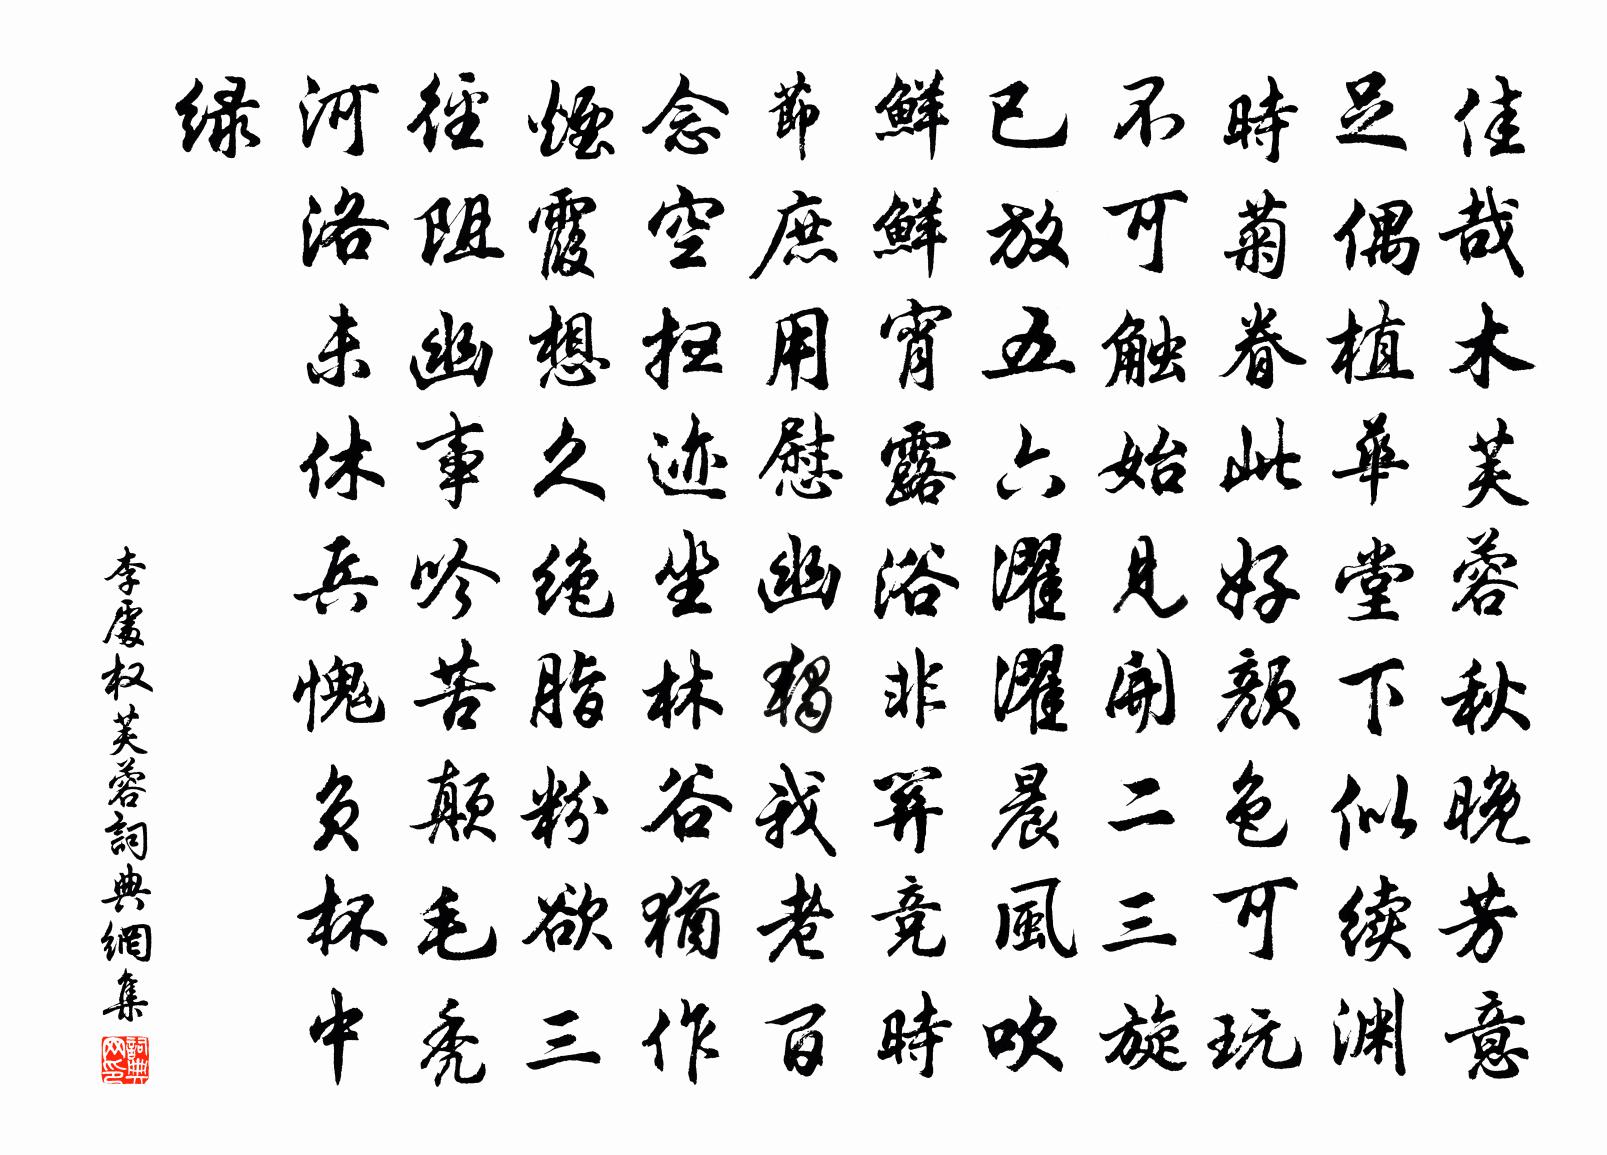 佳哉木芙蓉秋晚芳意
足偶植華堂下似续渊
時菊眷此好顏色可玩
不可触始見開二三旋
已放五六濯濯晨風吹
鮮鮮宵露浴非關竞時
節庶用慰幽獨我老百
念空扫迹坐林谷猶作
煙霞想久绝脂粉欲三
徑阻幽事吟苦颠毛秃
河洛未休兵愧負杯中
绿
李處权芙蓉詞典網集
詞典网印